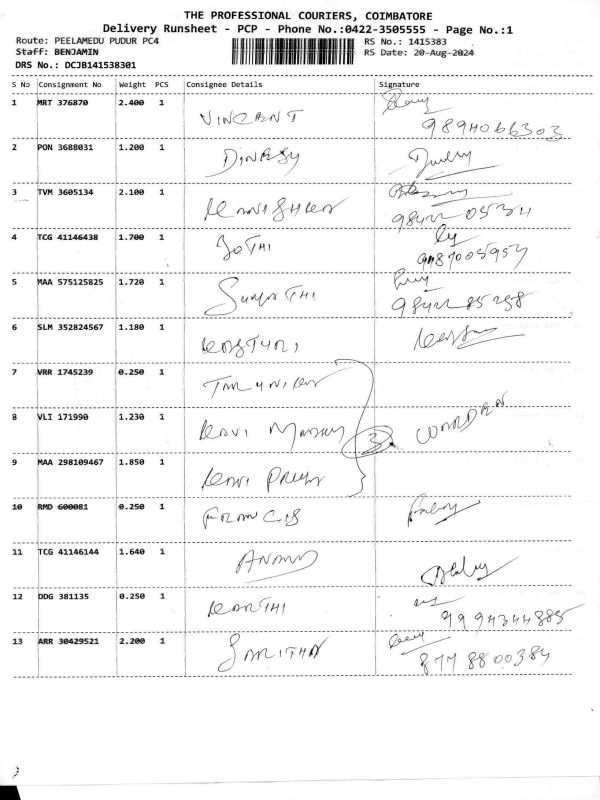 THE PROFESSIONAL COURIERS, COIMBATORE
Delivery Runsheet - PCP - Phone No.:0422-3505555 - Page No.:1
Route: PEELAMEDU PUDUR PC4 RS No.: 1415383
Staff: BENJAMIN RS Date: 20-Aug-2024
DRS No.: DCJB141538301
S No Consignment No Weight PCS Consignee Details Signature
1 MRT 376870 2.400 1 VINCENT
9894066303
2 PON 3688031 1.200 1 DINESH
3 TVM 3605134 2.100 1
4 TCG 41146438 1.700 1 JOTHI
5 MAA 575125825 1.720 1 SUMATHI
98422 85258
6 SLM 352824567 1.180 1 KASTURI
7 VRR 1745239 0.250 1
8 VLI 171990 1.230 1 3 WARDEN
9 MAA 298109467 1.850 1
10 RMD 600081 0.250 1 FRANCIS
11 TCG 41146144 1.640 1 ANAND
12 DDG 381135 0.250 1 KARTHI
9994344885
13 ARR 30429521 2.200 1 SARITHA
8778800384